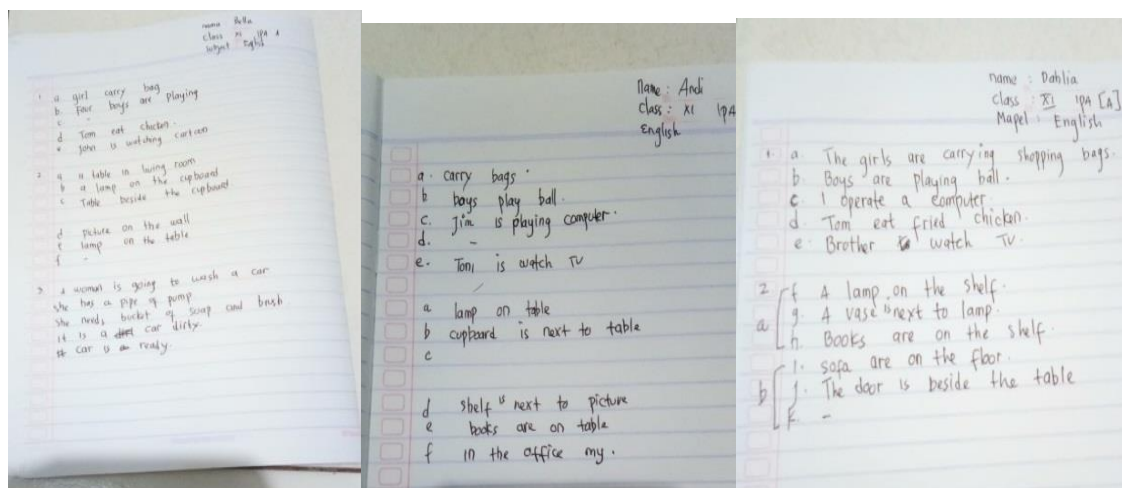 name Bella
class XI IPA A
Subject English
1. a girl carry bag
b. Four boys are playing
c -
d Tom eat chicken.
e John is watching cartoon
2. a a table in living room
b a lamp on the cupboard
c Table beside the cupboard
d picture on the wall
e lamp on the table
f -
3 A woman is going to wash a car
she has a pipe of pump
She needs bucket of soap and brush
it is a car dirty.
car is ready.
name : Andi
class : XI IPA
English
a. carry bags.
b boys play ball.
c. Jim is playing computer.
d. -
e. Toni is watch TV
a lamp on table
b cupboard is next to table
c
d shelf is next to picture
e books are on table
f in the office my.
name : Dahlia
class : XI IPA [A]
Mapel : English
1. a. The girls are carrying shopping bags.
b. Boys are playing ball.
c. I operate a computer.
d. Tom eat fried chicken.
e. Brother watch TV.
2 f A lamp on the shelf.
a g. A vase is next to lamp.
h. Books are on the shelf.
i. sofa are on the floor.
b j. The door is beside the table
k. -